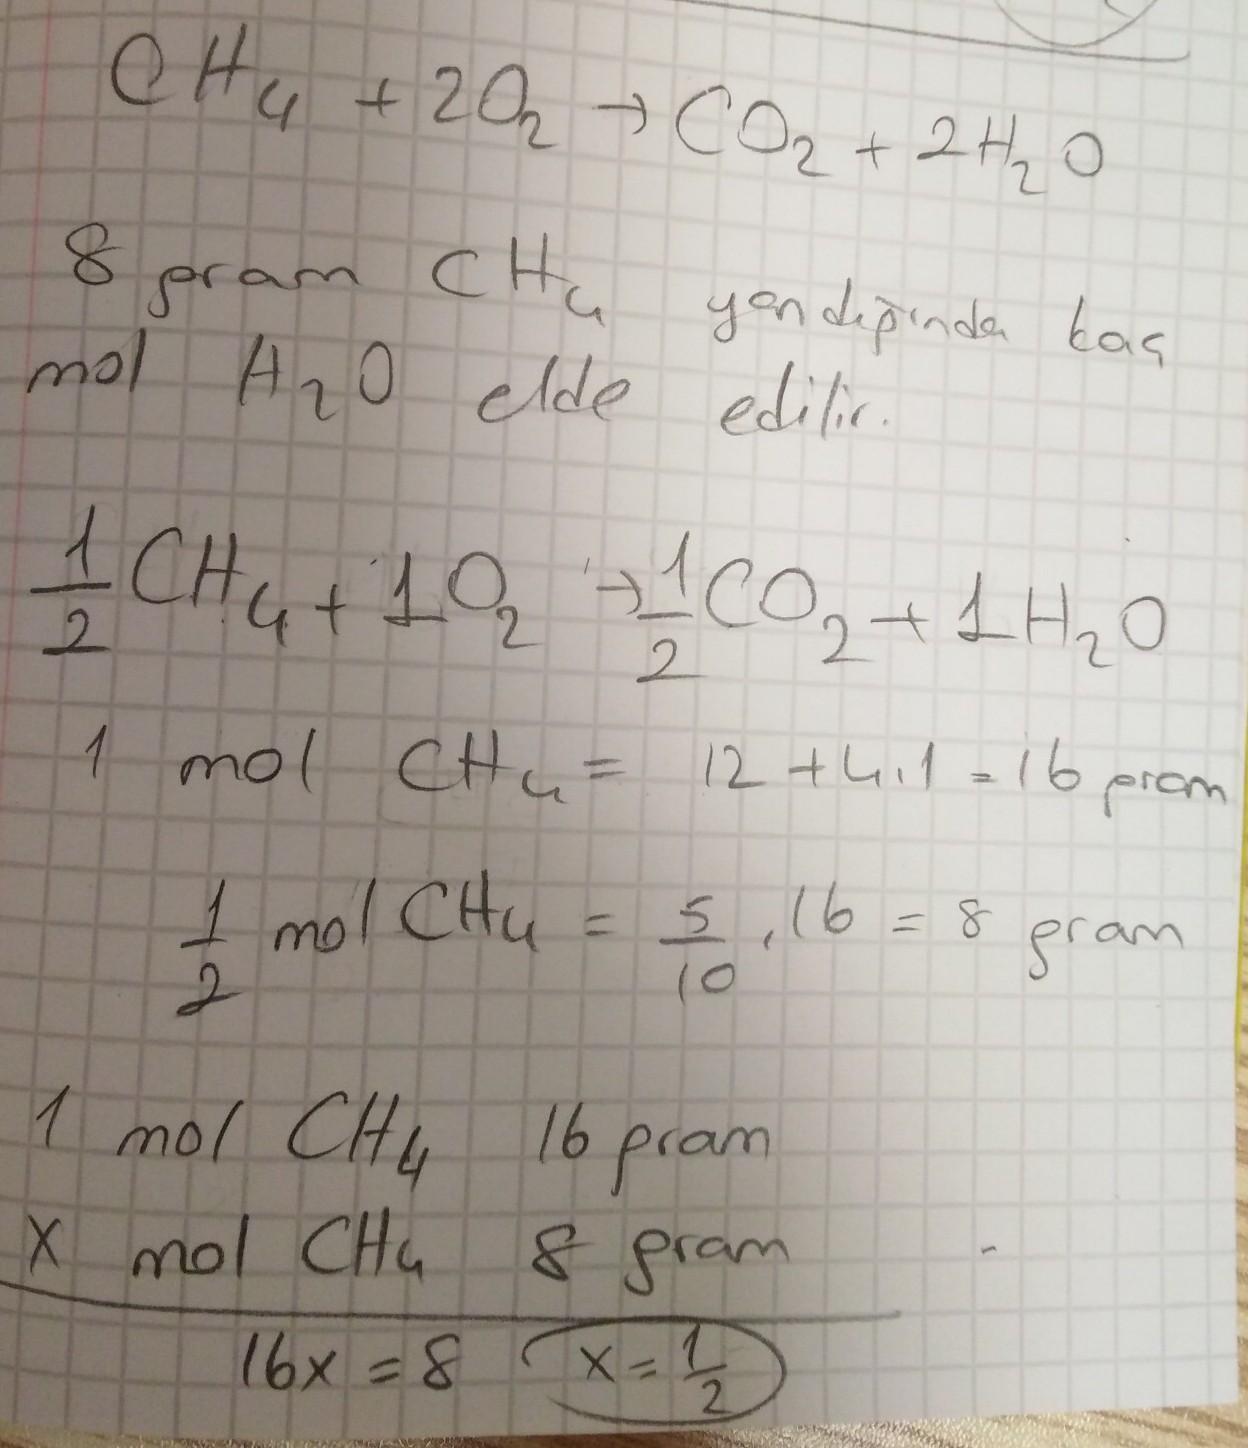 CH₄ + 2O₂ → CO₂ + 2H₂O
8 gram CH₄ yandığında kaç
mol H₂O elde edilir.
1/2 CH₄ + 1O₂ → 1/2 CO₂ + 1H₂O
1 mol CH₄ = 12 + 4.1 = 16 gram
1/2 mol CH₄ = 5/10 . 16 = 8 gram
1 mol CH₄ 16 gram
x mol CH₄ 8 gram
16x = 8 x = 1/2